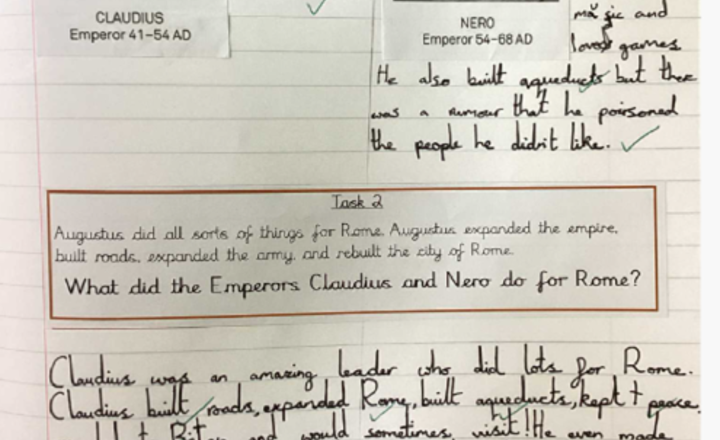 CLAUDIUS
Emperor 41-54 AD
NERO
Emperor 54-68 AD
music and
loved games
He also built aqueducts but there
was a rumour that he poisoned
the people he didn't like.
Task 2
Augustus did all sorts of things for Rome. Augustus expanded the empire,
built roads, expanded the army, and rebuilt the city of Rome.
What did the Emperors Claudius and Nero do for Rome?
Claudius was an amazing leader who did lots for Rome.
Claudius built roads, expanded Rome, built aqueducts, kept + peace
and would sometimes visit! He even made